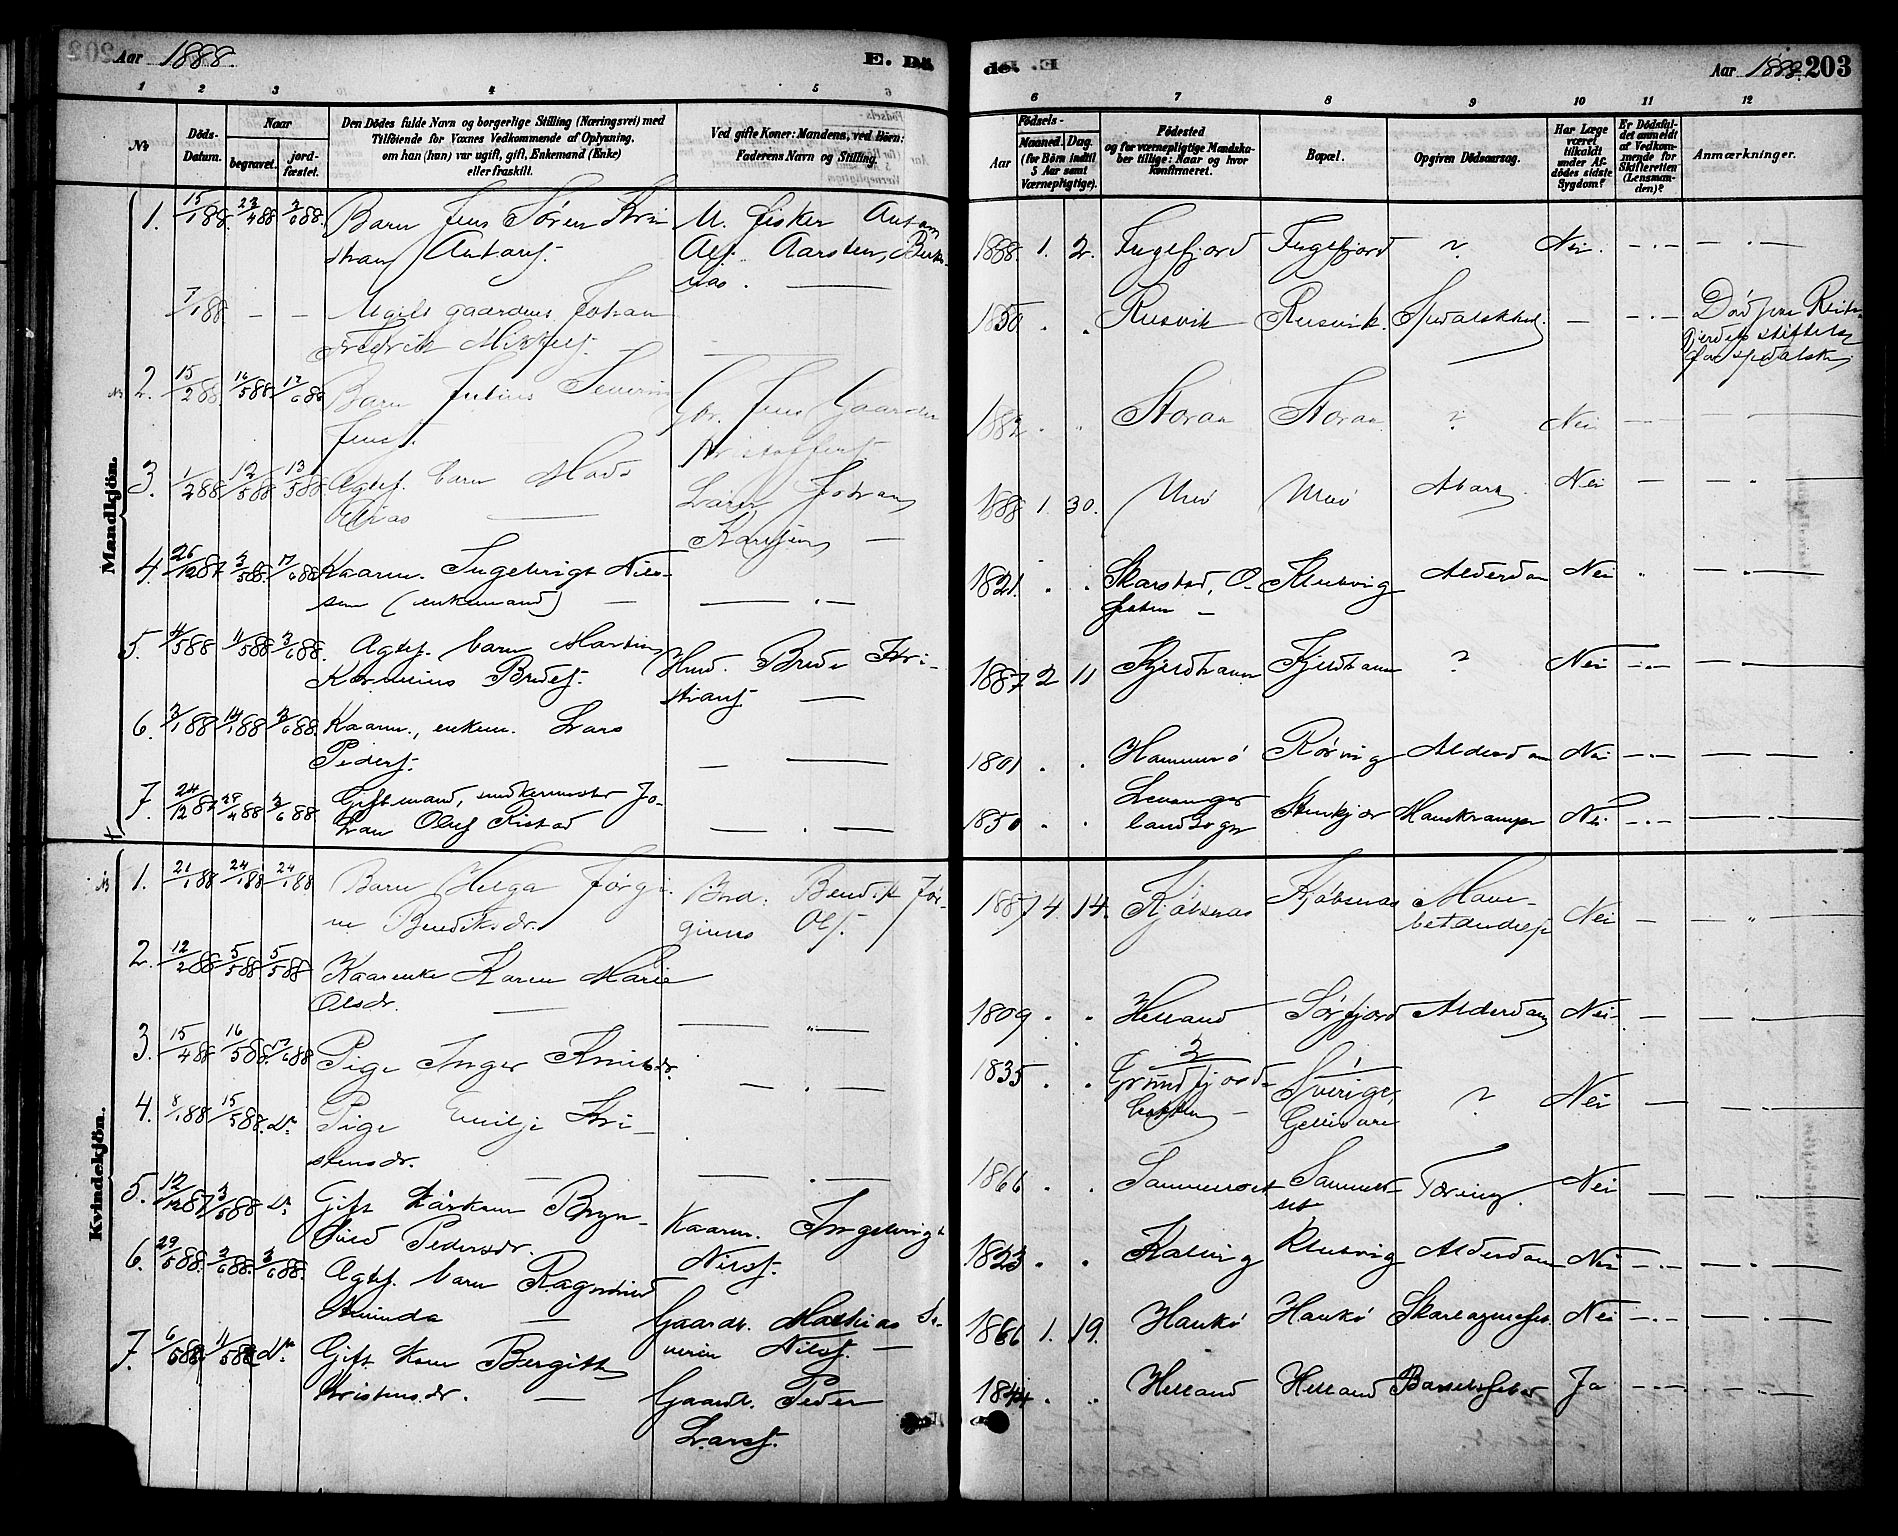 Aar 1888.
E. Dö
de. E.
Aar 1888. 203
1 2 3 4 5 6
6 7 8 9 10 11 12
No
Döds-
Datum.
Naar
begravet.
jord-
fæstet.
Den Dödes fulde Navn og borgerlige Stilling (Næringsvei) med
Tilföiende for Voxnes Vedkommende af Oplysning,
om han (hun) var ugift, gift, Enkemand (Enke)
eller fraskilt.
Ved gifte Koner: Mandens, ved Börn:
Faderens Navn og Stilling.
Födsels-
Aar
Maaned. Dag.
(for Börn indtil
5 Aar samt
Værnepligtige).
Födested
og for værnepligtige Mandska-
ber tillige: Naar og hvor
konfirmeret.
Bopæl.
Opgiven Dödsaarsag.
Har Læge
været
tilkaldt
under Af-
dödes sidste
Sygdom?
Er Dödsfal-
det anmeldt
af Vedkom-
mende for
Skifteretten
(Lensman-
den)?
Anmærkninger.
Mandkjön.
1. 15/1 88. 23/4 88 3/6 88. Barn Jens Søren Kri
stian Antons.
U. fisker Anton
Alf. Aarsten,
1888. 1. 2. Fuglfjord Fuglfjord ? Nei. — —
7/1 88 — — Ugift gaardm. Johan
Fredrik Mikkels. —
1850 . . Rusvik Rusvik. Spedalskhed. — — Død paa Reit-
gjerdets stiftelse
for spedalske
2. 15/2 88. 16/5 88. 17/6 88 Barn Julius Severin
Jens.
Gbr. Jens Gaarder
Kristoffers.
188 . . Storaa Storaa ? Nei — —
3. 1/2 88 12/5 88 13/5 88 Ægtef. barn Mads
Elias —
Lærer Johan
Karlsen —
1888 1. 30. Ulvø Ulvø Nei — —
4. 26/12 87 3/5 88. 17/6 88 Kaarm. Ingebrigt Nils-
sen (enkemand) —
1821. . . Skarstad, O-
foten —
Klubvig Alderdom Nei —
5. 4/5 88 11/5 88 3/6 88. Ægtef. barn Martin
Kornelius Bredes.
Husd. Brede Kri-
stians. —
1887 2 11 Kjeldhavn Kjeldhavn ? Nei — —
6. 3/1 88 14/1 88 3/6 88. Kaarm., enkem. Lars
Peders.
1801 . . Hammerø Rørvig Alderdom Nei — —
7. 24/12 87 28/4 88 3/6 88 Gift mand, snedkermester Jo-
han Oluf Ristad
1850 . . Levanger
landsogn
Stenkjær Mavekramper Nei — —
Kvindekjön.
1. 21/1 88 24/1 88 24/1 88 Barn Helga Jørgi-
ne Bendiksdr.
Ind. Bendik Jør-
ginus Ols.
1887 4. 14. Kjøbsnes Kjøbsnes Mave-
betændelse
Nei — —
2. 12/2 88 5/5 88 5/5 88 Kaarenke Karen Marie
Olsdr. —
1809 . . Helland Sørfjord Alderdom Nei — —
3. 15/4 88 16/5 88. 17/6 88 Pige Inger Knutsdr.
1835 . . Grundfjord-
botten —
Sverige,
Gellivare
? Nei — —
4. 8/1 88 15/5 88. Do Pige Emilje Kri-
stensdr.
1866 . . Sammelset Sammel-
set
Tæring Nei — —
5. 12/12 87 3/5 88 Do Gift kaarkone Bryn-
hild Pedersdr.
Kaarm. Ingebrigt
Nilss.
1823 . . Kalvig Klubvig Alderdom Nei — —
6. 29/5 88. 3/6 88. 3/6 88. Ægtef. barn Ragnhild
Aminda —
Gaardb. Mathias Se-
verin Nilss. —
1886 1. 19. Haukø Haukø Nei — —
7. 6/5 88. 11/5 88 Do Gift kone Bergitte
Kristensdr. —
Gaardb. Peder
Larss.
1844 . . Helland Helland Barselfeber Ja — —